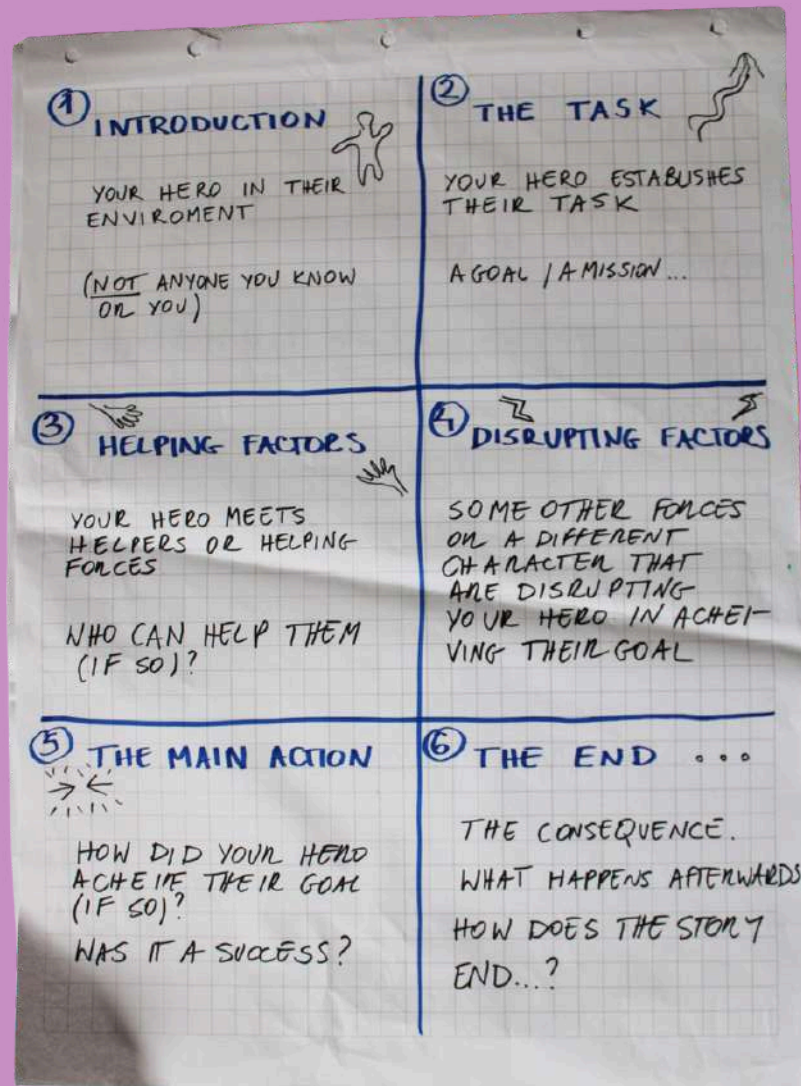 1 INTRODUCTION
YOUR HERO IN THEIR
ENVIROMENT
(NOT ANYONE YOU KNOW
OR YOU)
2 THE TASK
YOUR HERO ESTABLISHES
THEIR TASK
A GOAL / A MISSION...
3 HELPING FACTORS
YOUR HERO MEETS
HELPERS OR HELPING
FORCES
WHO CAN HELP THEM
(IF SO)?
4 DISRUPTING FACTORS
SOME OTHER FORCES
OR A DIFFERENT
CHARACTER THAT
ARE DISRUPTING
YOUR HERO IN ACHEI-
VING THEIR GOAL
5 THE MAIN ACTION
HOW DID YOUR HERO
ACHEIVE THEIR GOAL
(IF SO)?
WAS IT A SUCCESS?
6 THE END ...
THE CONSEQUENCE.
WHAT HAPPENS AFTERWARDS
HOW DOES THE STORY
END...?